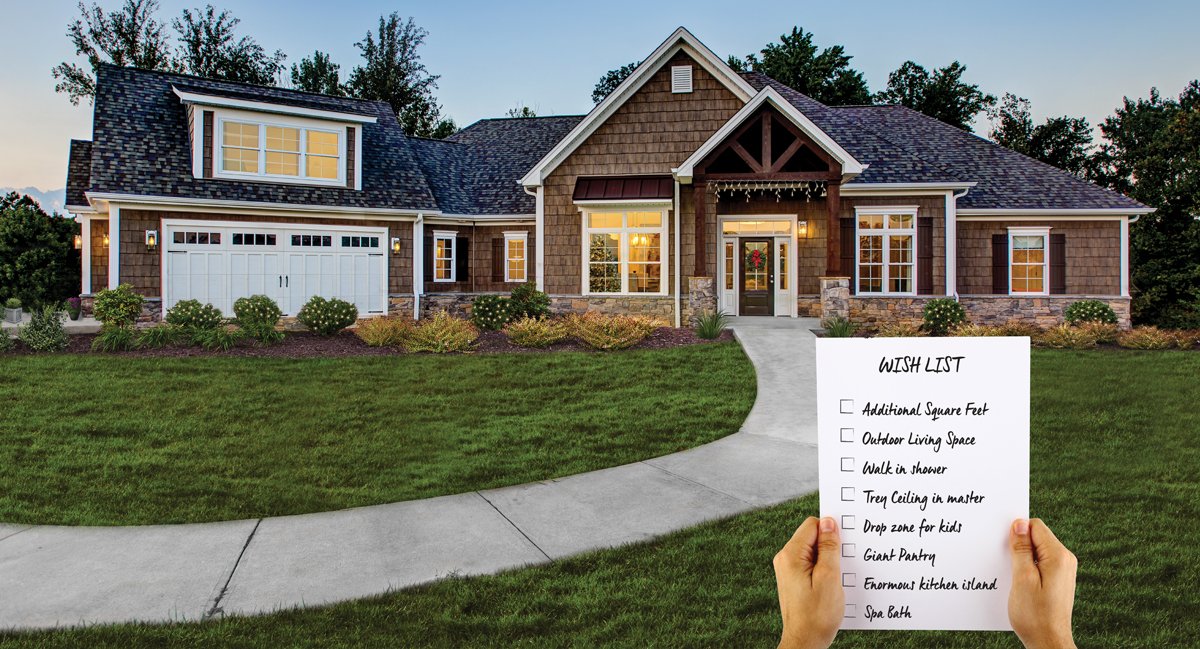 WISH LIST
Additional Square Feet
Outdoor Living Space
Walk in shower
Trey Ceiling in master
Drop zone for kids
Giant Pantry
Enormous kitchen island
Spa Bath